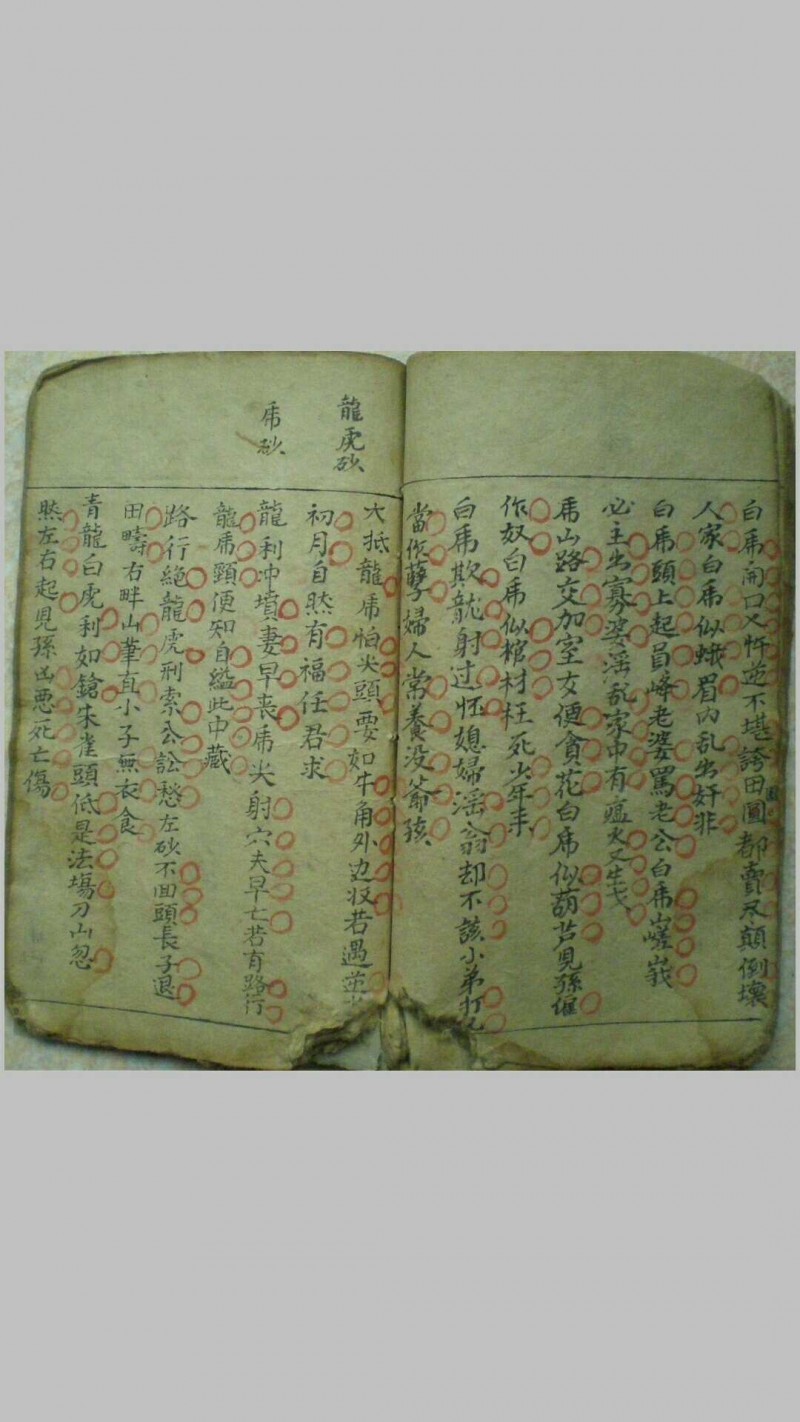 白虎開口又忤逆不堪誇田園都賣尽顛倒壞
人家白虎似蛾眉內乱出奸非
白虎頭上起員峰老婆罵老公白虎山嵯峩
必主出寡婆淫乱家中有瘟火又生
虎山路交加室女便貪花白虎似葫芦兒孫催
作奴白虎似棺材枉死少年來
白虎欺龍射过怀媳婦淫翁却不該小弟打兄
當作孽婦人常養没爺孩
龍虎砂
大抵龍虎怕尖頭要如牛角外边収若遇並
初月自然有福任君求
虎砂
龍利冲墳妻早喪虎尖射穴夫早亡若有路行
龍虎頸便知自縊此中藏
路行絶龍虎刑索公訟愁左砂不囬頭長子退
田疇右畔山葦直小子無衣食
青龍白虎利如鎗朱雀頭低是法塲刀山忽
然左右起兒孫凶悪死亡傷